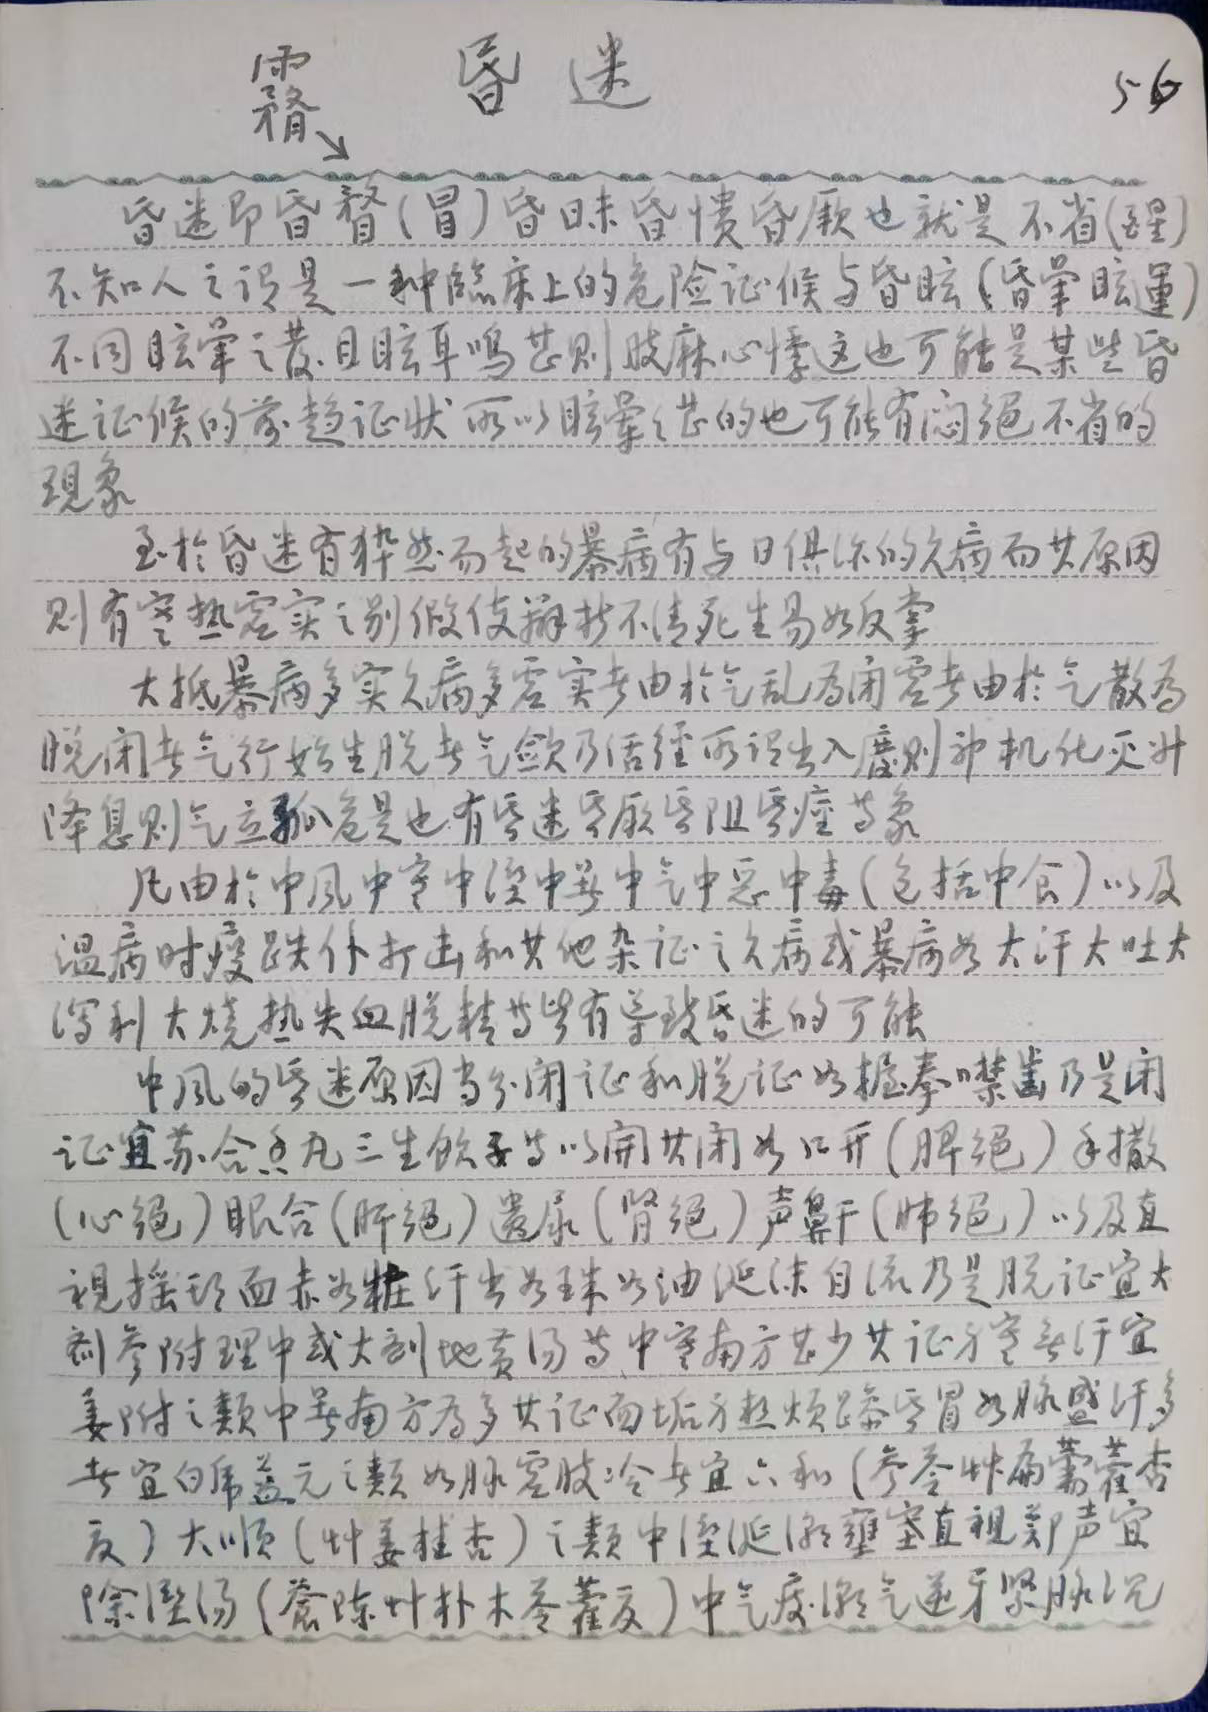 昏迷
56
霿
昏迷即昏瞀(冒)昏昧昏愦昏厥也就是不省(醒)
不知人之谓是一种臨床上的危险证候与昏眩(昏暈眩運)
不同眩暈之发目眩耳鸣甚则肢麻心悸这也可能是某些昏
迷证候的前趋证状所以眩暈之甚的也可能有闷绝不省的
現象
至於昏迷有猝然而起的暴病有与日俱深的久病而其原因
则有寒热虚实之别假使辨析不清死生易如反掌
大抵暴病多实久病多虚实者由於气乱为闭虚者由於气散为
脱闭者气行始生脱者气敛乃活经所谓出入廢则神机化灭升
降息则气立孤危是也有昏迷昏厥昏阻昏痙等象
凡由於中風中寒中溼中暑中气中恶中毒(包括中食)以及
温病时疫跌仆打击和其他杂证之久病或暴病如大汗大吐大
泻利大烧热失血脱精等皆有导致昏迷的可能
中風的昏迷原因当分闭证和脱证如握拳噤齒乃是闭
证宜苏合香丸三生飲等以開其闭如口开(脾绝)手撒
(心绝)眼合(肝绝)遗尿(肾绝)声鼾(肺绝)以及直
視摇头面赤如粧汗出如珠如油涎沫自流乃是脱证宜大
剂参附理中或大剂地黄汤等中寒南方甚少其证身寒無汗宜
姜附之類中暑南方为多其证面垢身热烦躁昏冒如脉盛汗多
者宜白虎益元之類如脉虚肢冷者宜六和(参苓艸扁藿杏
夏)大順(艸姜桂杏)之類中溼涎潮壅塞直視郑声宜
除溼汤(蒼陈艸朴木苓藿夏)中气痰潮气逆牙紧脉沉